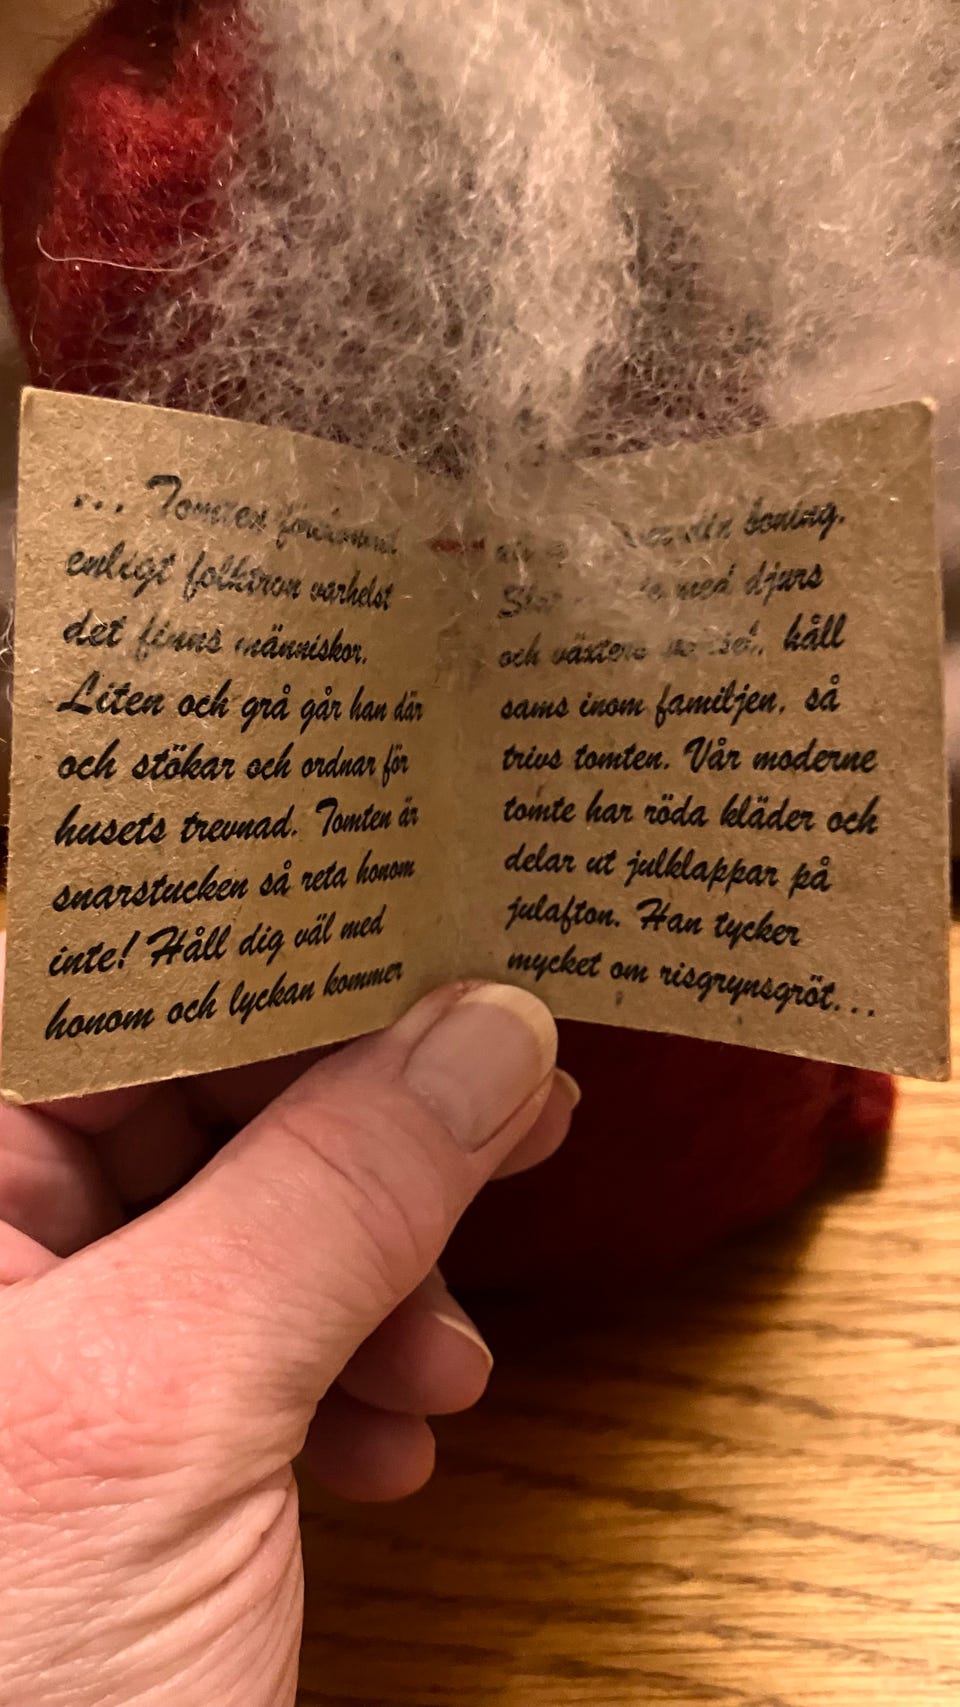 ... Tomten förekommer
enligt folktron varhelst
det finns människor.
Liten och grå går han där
och stökar och ordnar för
husets trevnad. Tomten är
snarstucken så reta honom
inte! Håll dig väl med
honom och lyckan kommer
din boning.
med djurs
och växters håll
sams inom familjen, så
trivs tomten. Vår moderne
tomte har röda kläder och
delar ut julklappar på
julafton. Han tycker
mycket om risgrynsgröt...